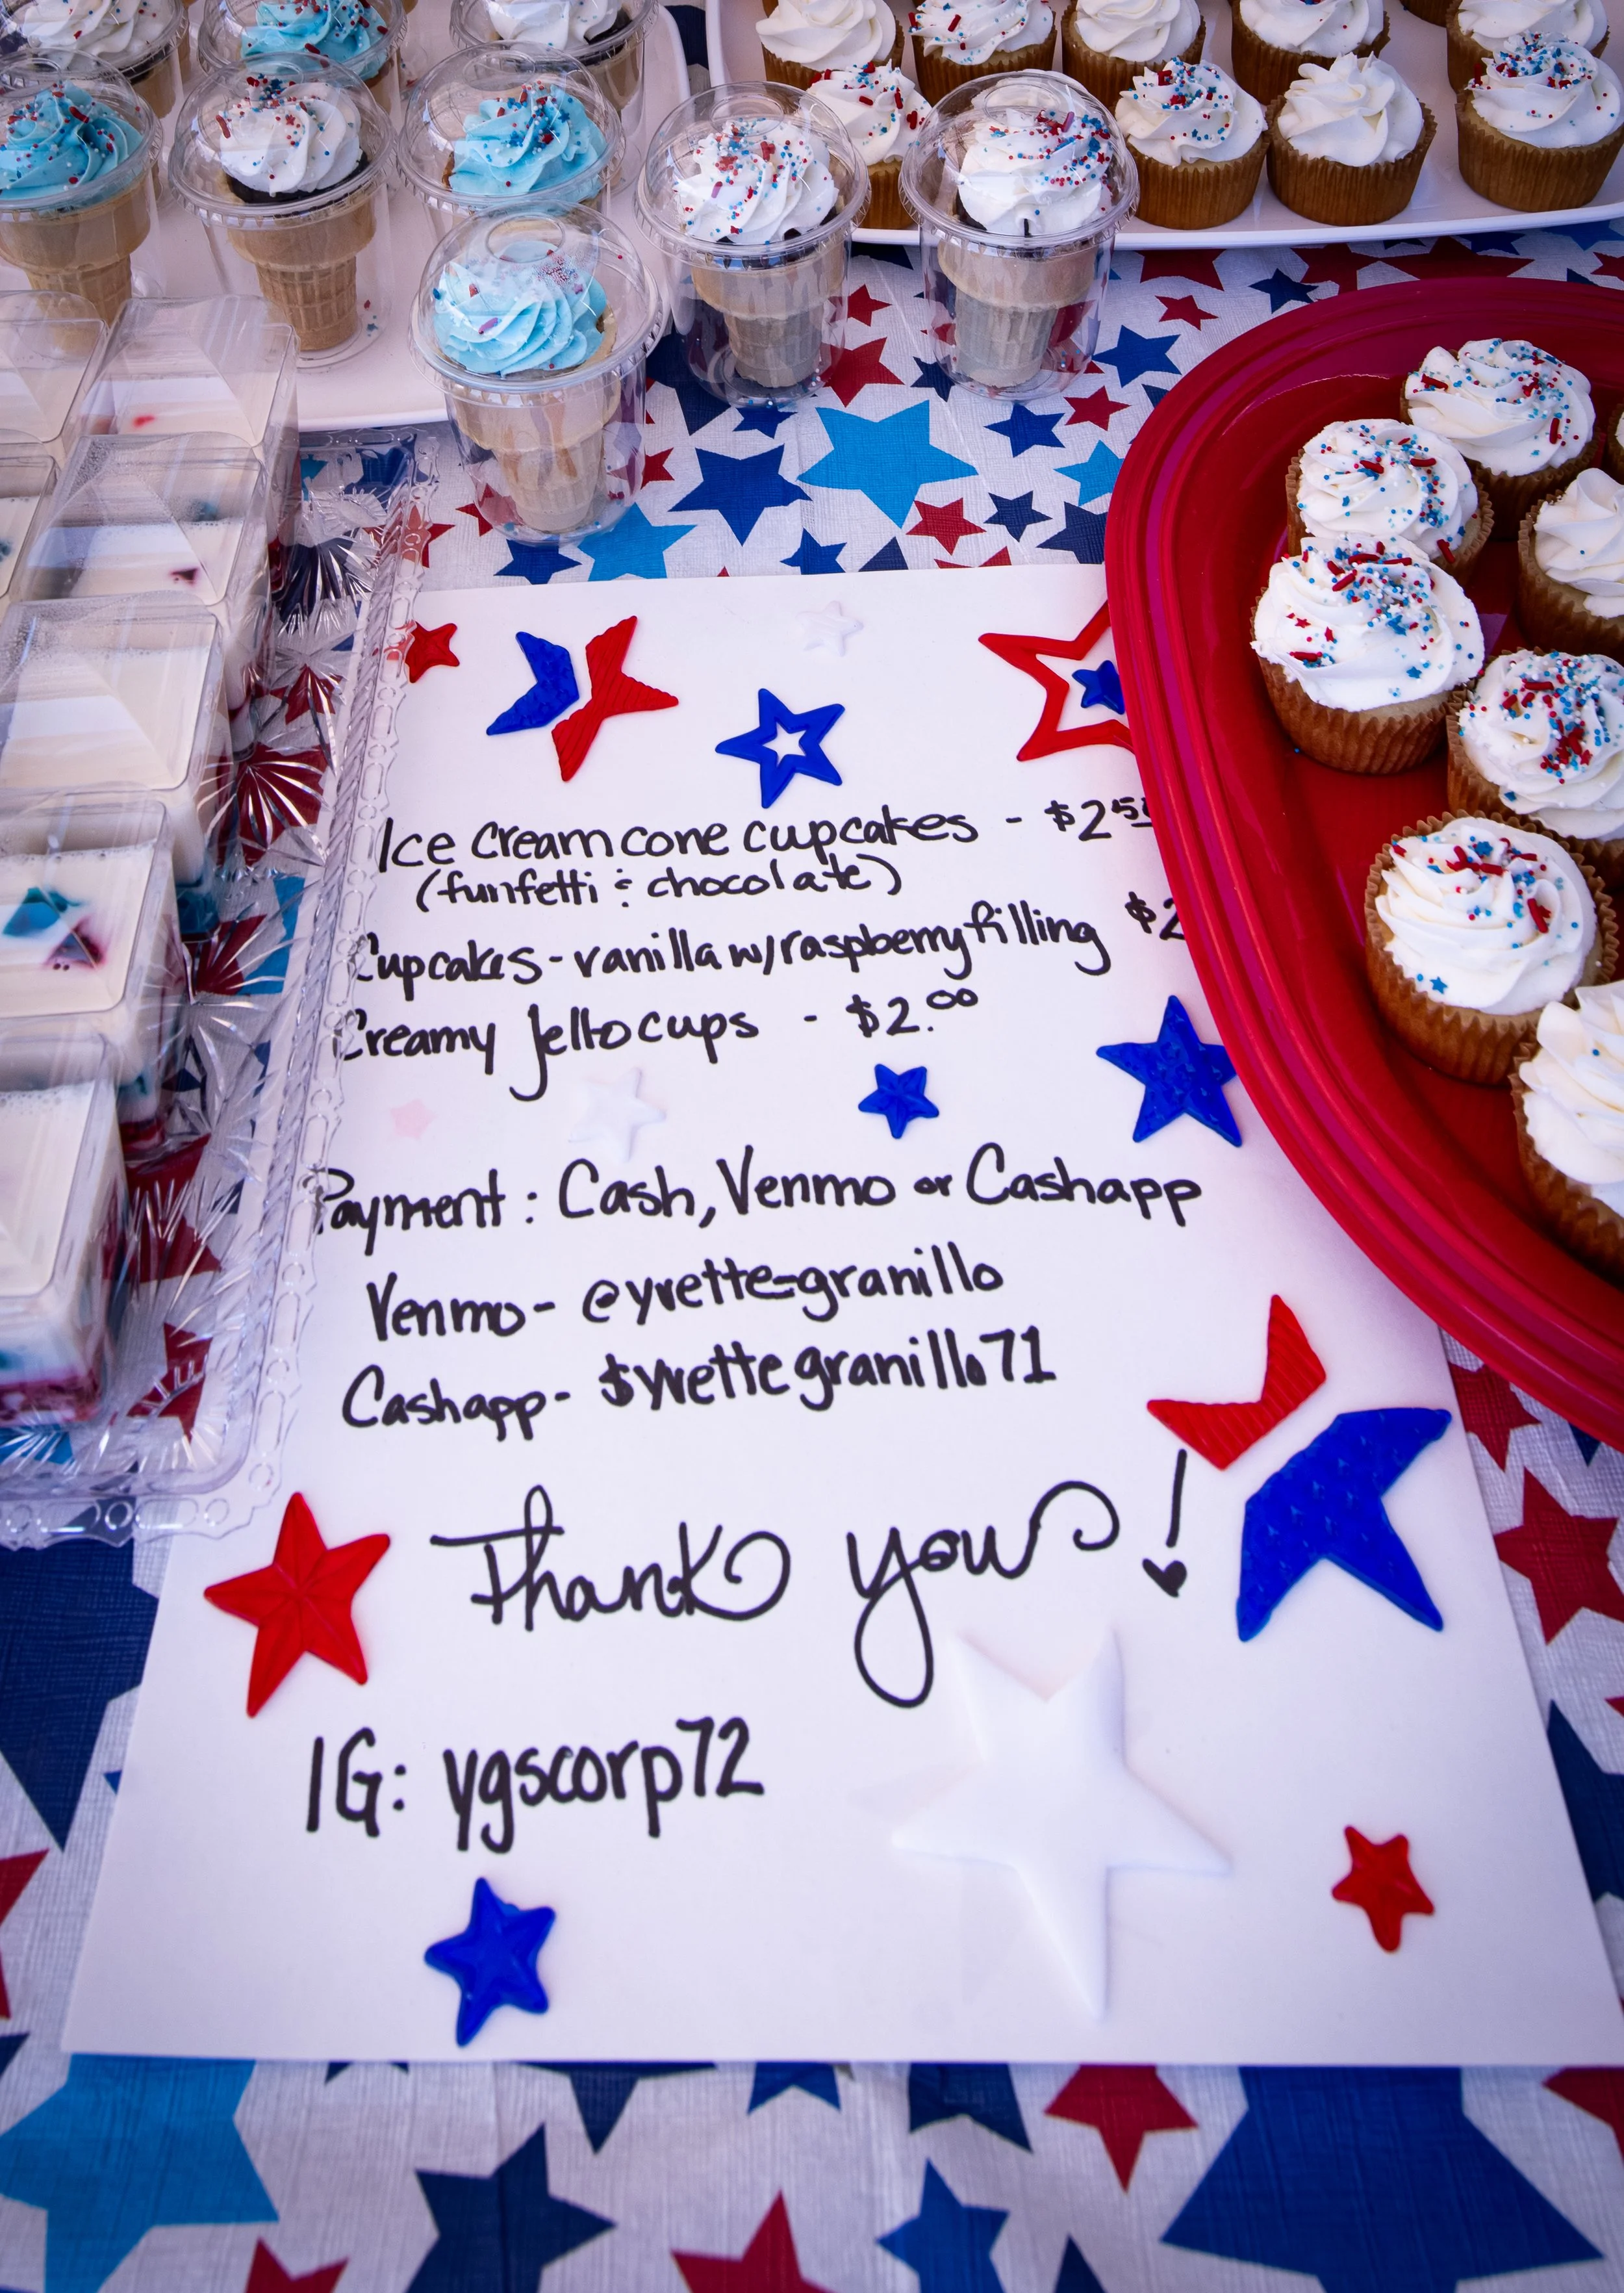 Ice cream cone cupcakes - $2.5
(funfetti & chocolate)
Cupcakes - vanilla w/raspberry filling $2
Creamy Jello cups - $2.00
Payment: Cash, Venmo or Cashapp
Venmo - @yvette-granillo
Cashapp - $yvettegranillo71
Thank you!
IG: ygscorp72